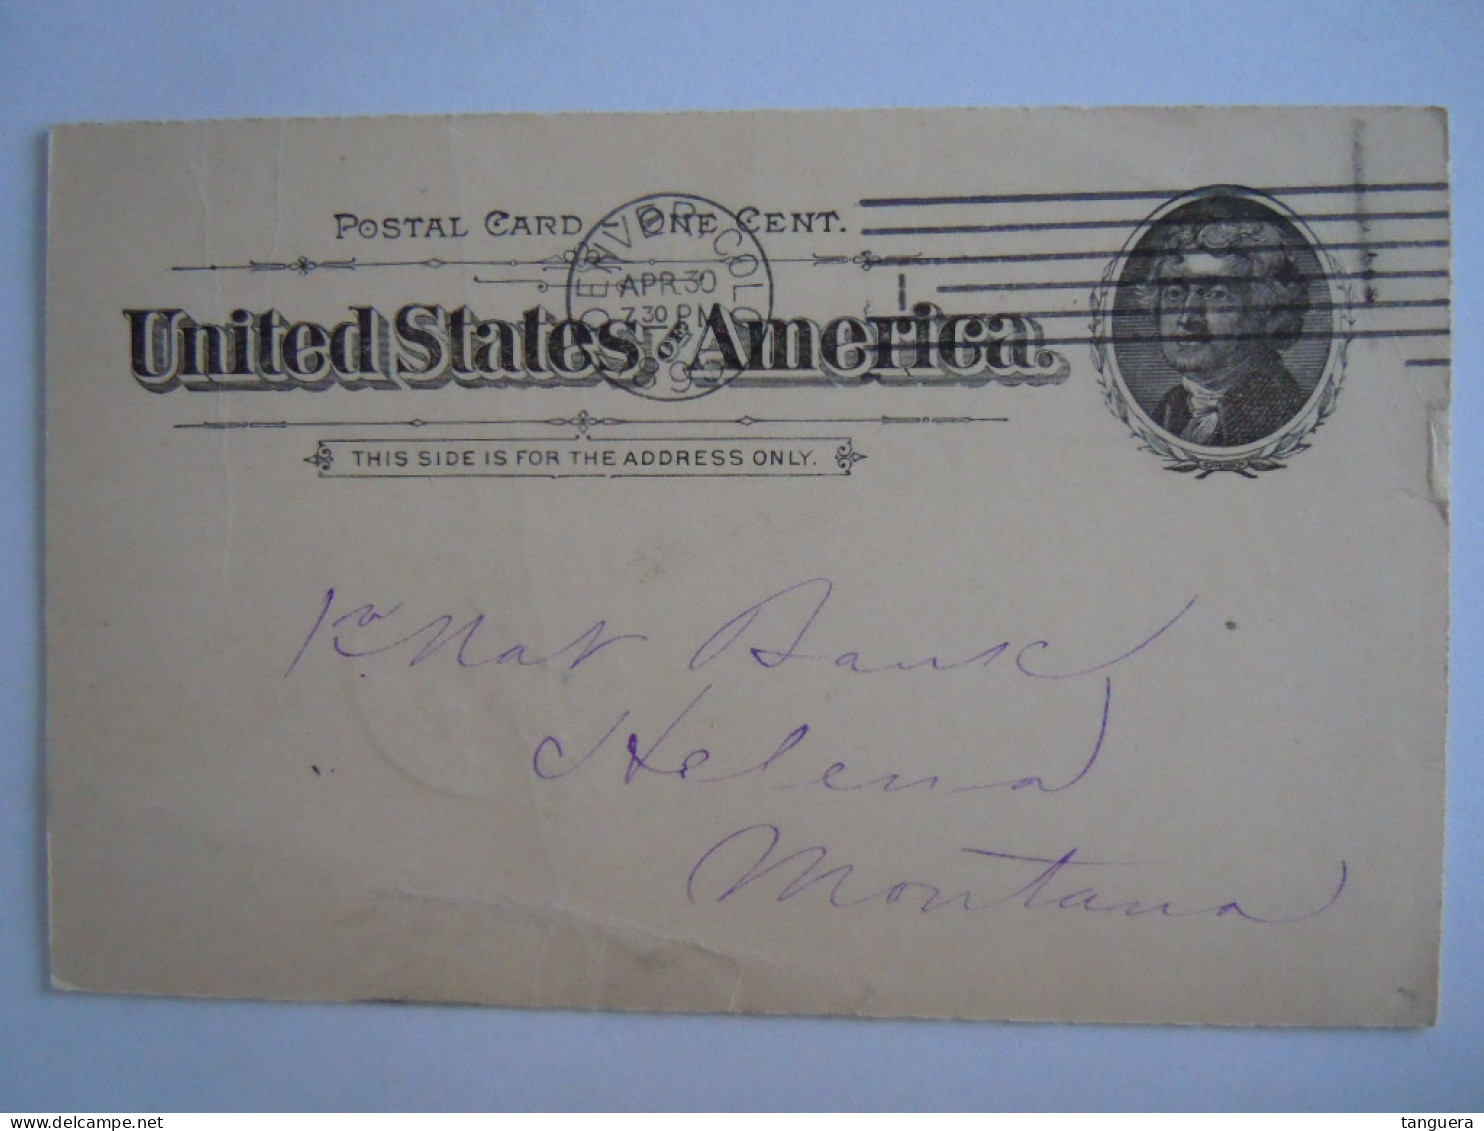 POSTAL CARD – ONE CENT.
DENVER, COLO.
APR 30
7 30 PM
United States of America.
THIS SIDE IS FOR THE ADDRESS ONLY.
Nat Bank
Helena
Montana
tanguera